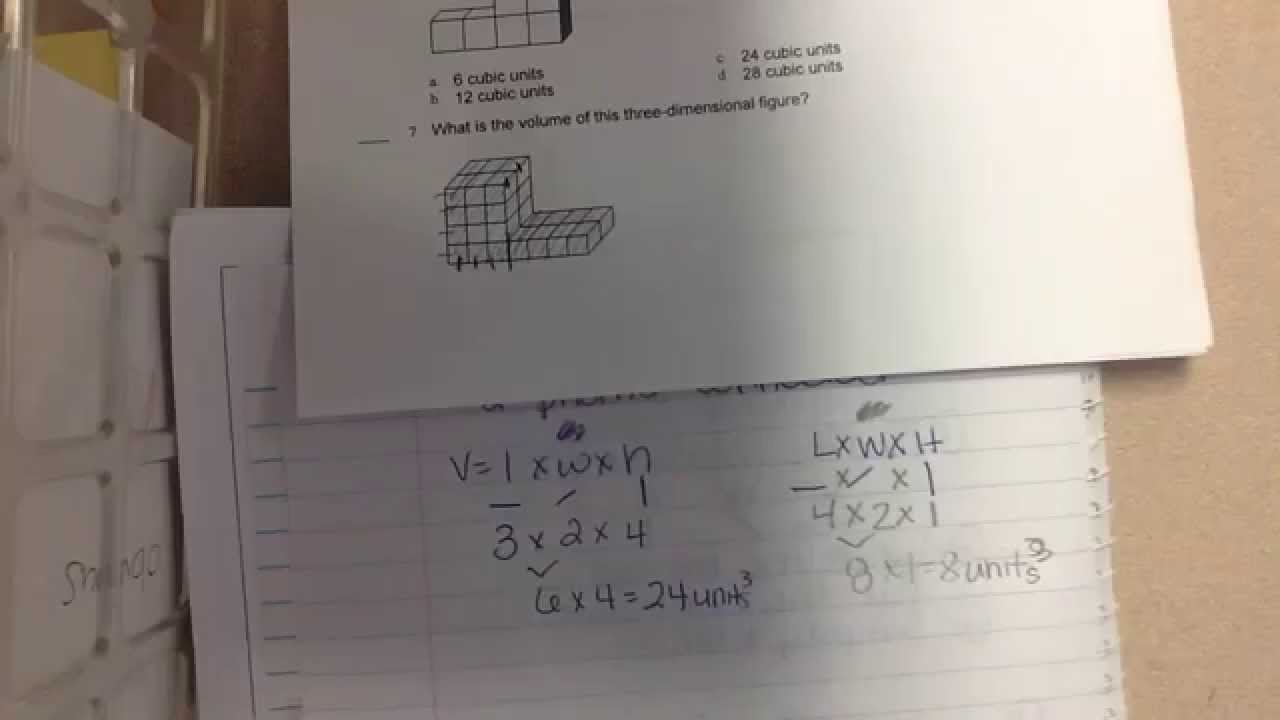 a 6 cubic units
b 12 cubic units
c 24 cubic units
d 28 cubic units
7 What is the volume of this three-dimensional figure?
V=l x w x h
3 x 2 x 4
6 x 4 = 24 units³
L x W x H
_ x ✓ x |
4 x 2 x 1
8 x 1 = 8 units³